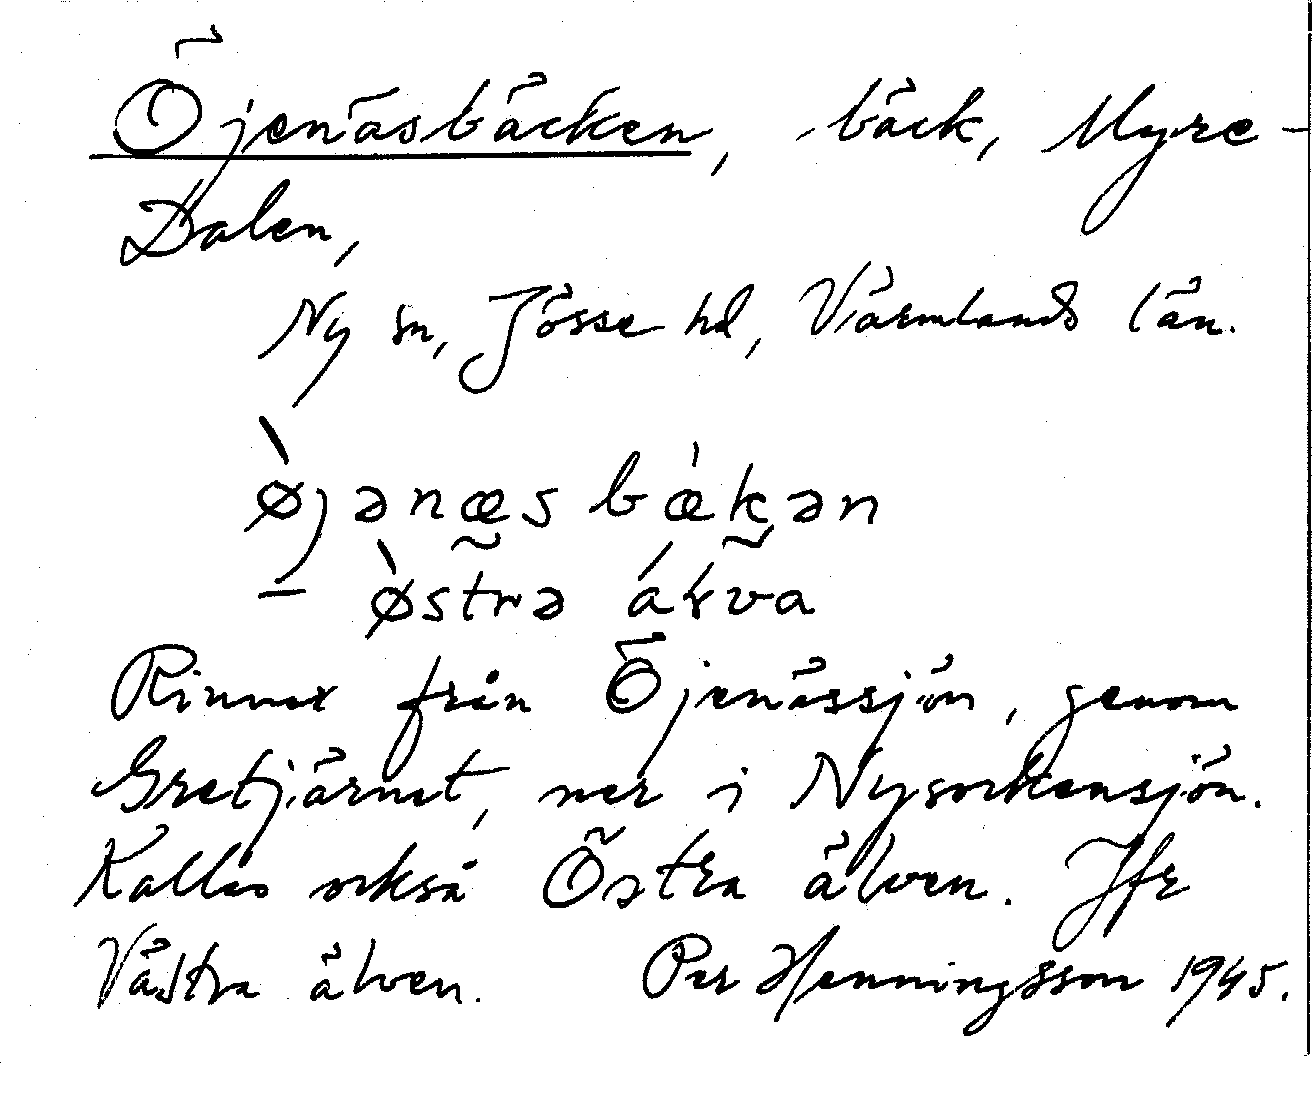 Öjenäsbäcken, bäck, Myre-
Dalen,
Ny sn, Jösse hd, Värmlands län.
ø̀jənæs bæ̀kən
– ø̀strə álva
Rinner från Öjenässjön, genom
Gretjärnet, ner i Nysockensjön.
Kallas också Östra älven. Jfr
Västra älven. Per Henningsson 1945.